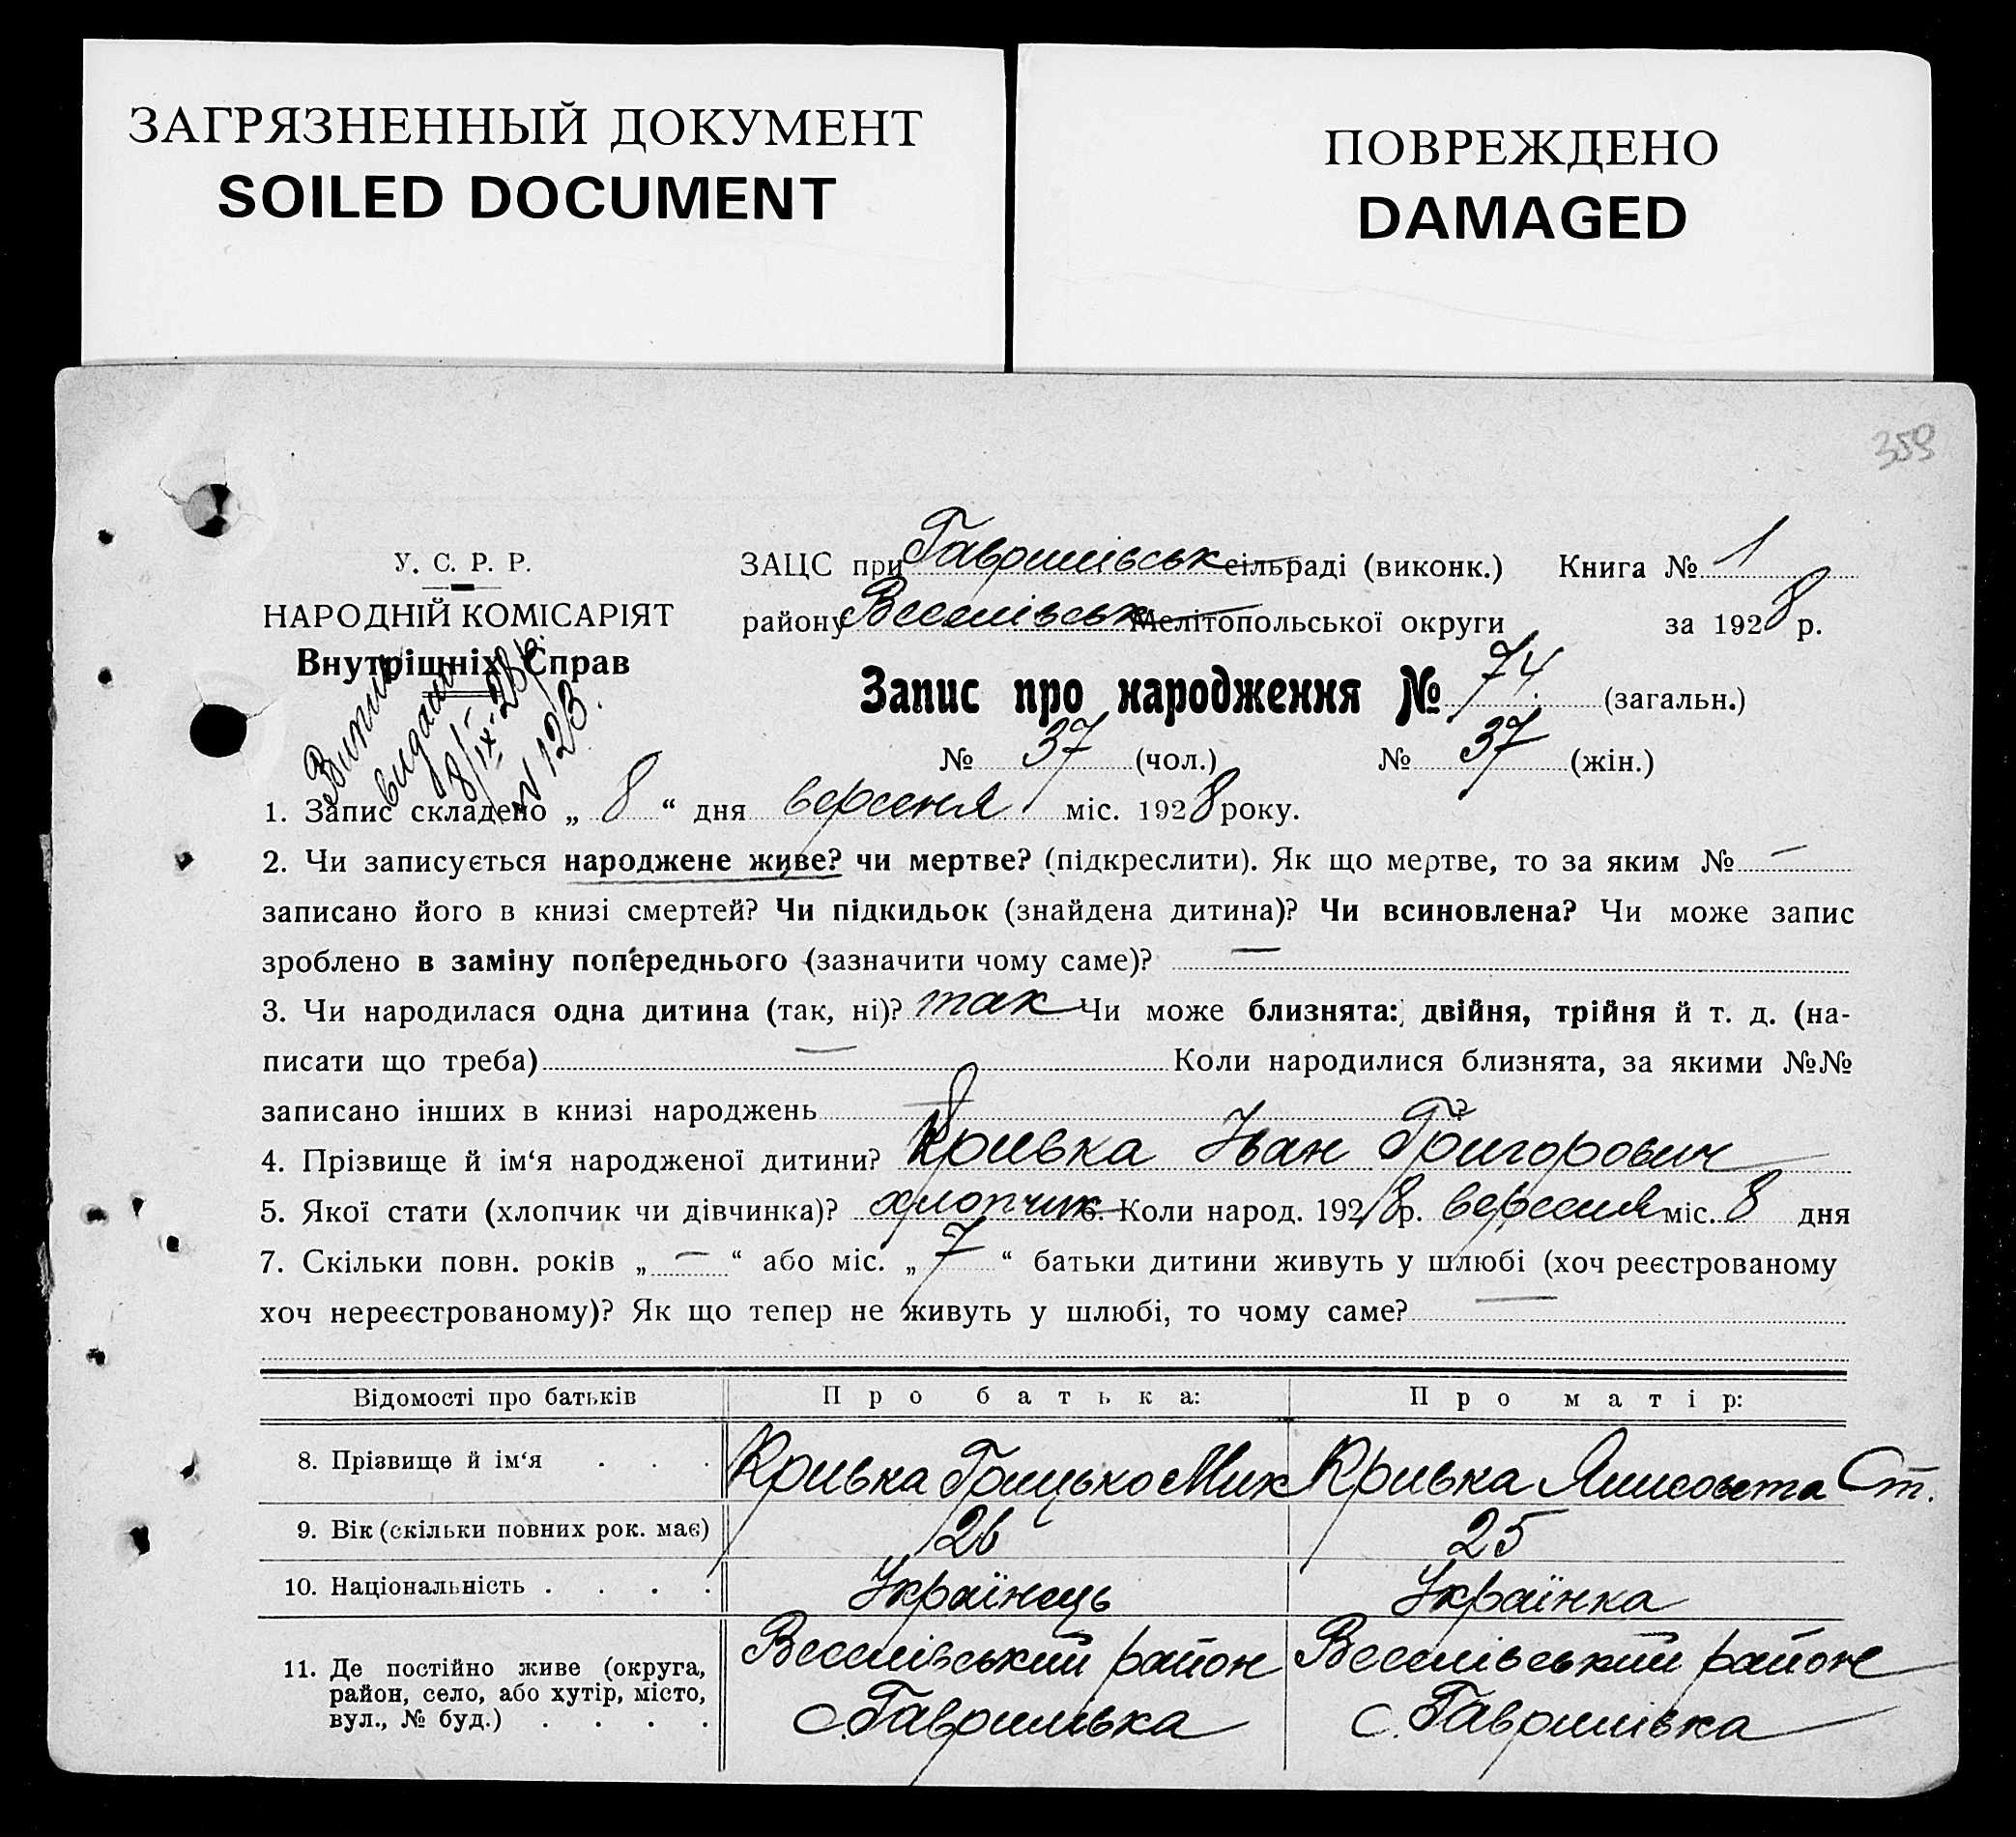 ЗАГРЯЗНЕННЫЙ ДОКУМЕНТ
SOILED DOCUMENT
ПОВРЕЖДЕНО
DAMAGED
359
У. С. Р. Р.
НАРОДНІЙ КОМІСАРІЯТ
Внутрішніх Справ
Витяг
видано
8/IX-28р.
№ 123.
ЗАЦС при Гаврилівськ сільраді (виконк.) Книга № 1
району Веселівськ Мелітопольської округи за 1928 р.
Запис про народження № 74 (загальн.)
№ 37 (чол.) № 37 (жін.)
1. Запис складено „ 8 “ дня вересня міс. 1928 року.
2. Чи записується народжене живе? чи мертве? (підкреслити). Як що мертве, то за яким № —
записано його в книзі смертей? Чи підкидьок (знайдена дитина)? Чи всиновлена? Чи може запис
зроблено в заміну попереднього (зазначити чому саме)? —
3. Чи народилася одна дитина (так, ні)? так Чи може близнята: двійня, трійня й т. д. (на-
писати що треба) — Коли народилися близнята, за якими №№
записано інших в книзі народжень ?
4. Прізвище й ім‘я народженої дитини? Кривка Іван Григорович
5. Якої стати (хлопчик чи дівчинка)? хлопчик 6. Коли народ. 1928 р. вересня міс. 8 дня
7. Скільки повн. років „ — “ або міс. „ 7 “ батьки дитини живуть у шлюбі (хоч реєстрованому
хоч нереєстрованому)? Як що тепер не живуть у шлюбі, то чому саме? —
Відомості про батьків Про батька: Про матір:
8. Прізвище й ім‘я . . . Кривка Грицько Мих Кривка Лисовета Ст.
9. Вік (скільки повних рок. має) 26 25
10. Національність . . . . Українець Українка
11. Де постійно живе (округа, район, село, або хутір, місто, вул., № буд.) . . . . Веселівський район Веселівський район
с. Гаврилівка с. Гаврилівка